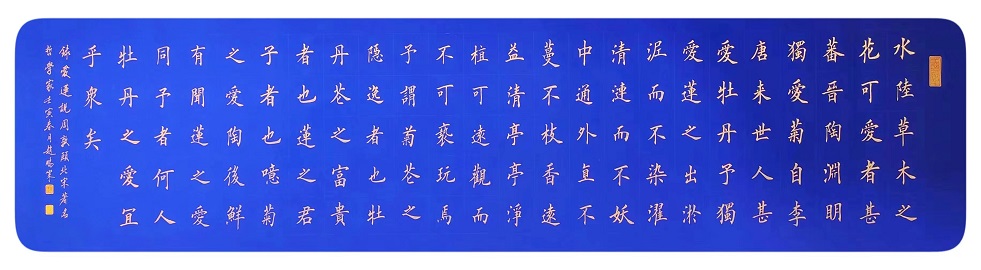 水陸草木之
花可愛者甚
蕃晉陶淵明
獨愛菊自李
唐来世人甚
愛牡丹予獨
愛蓮之出淤
泥而不染濯
清漣而不妖
中通外直不
蔓不枝香遠
益清亭亭淨
植可遠觀而
不可褻玩焉
予謂菊花之
隐逸者也牡
丹花之富貴
者也蓮之君
子者也噫菊
之愛陶後鮮
有聞蓮之愛
同予者何人
牡丹之愛宜
乎衆矣
錄愛蓮說周敦頤北宋著名
哲學家壬寅春月趙